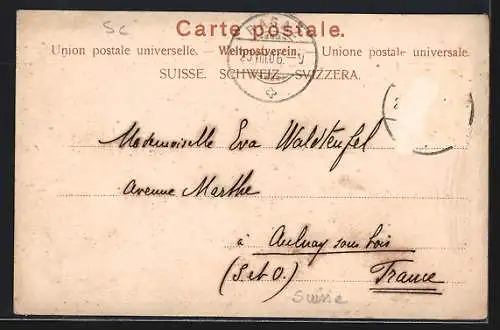 Sc
Carte postale.
Union postale universelle. — Weltpostverein. — Unione postale universale.
SUISSE. SCHWEIZ. SVIZZERA.
Mademoiselle Eva Waldteufel
Avenue Marthe
à Aulnay sous bois
(S et O.) France
Suisse